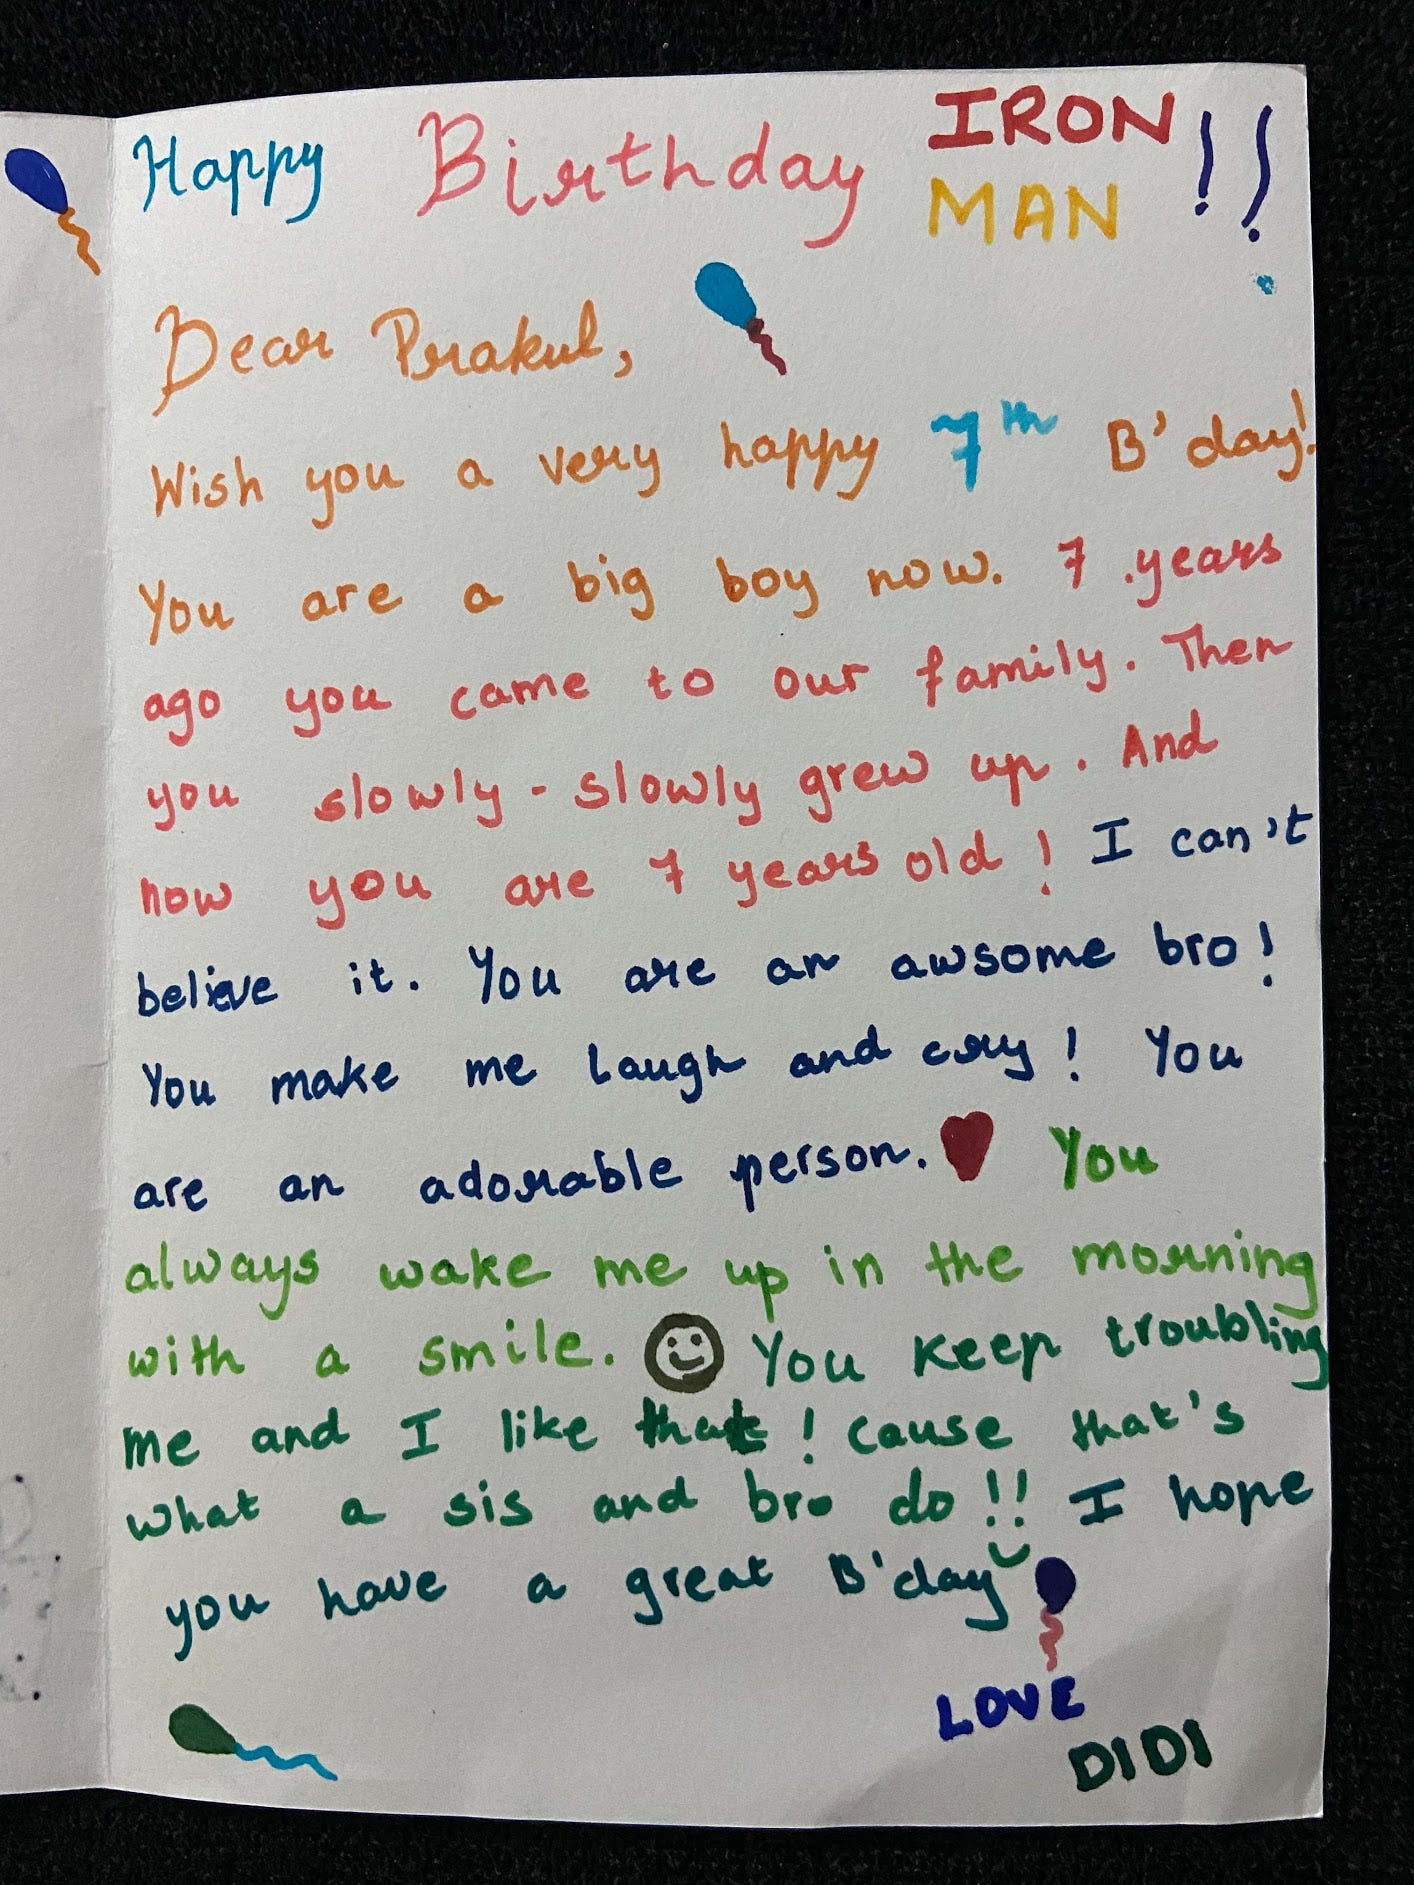 Happy Birthday IRON MAN !!
Dear Prakul,
Wish you a very happy 7th B'day!
You are a big boy now. 7 years
ago you came to our family. Then
you slowly - slowly grew up. And
now you are 7 years old! I can't
believe it. You are an awsome bro!
You make me laugh and cry! You
are an adorable person. You
always wake me up in the morning
with a smile. You keep troubling
me and I like that! cause that's
what a sis and bro do!! I hope
you have a great B'day
LOVE
DIDI